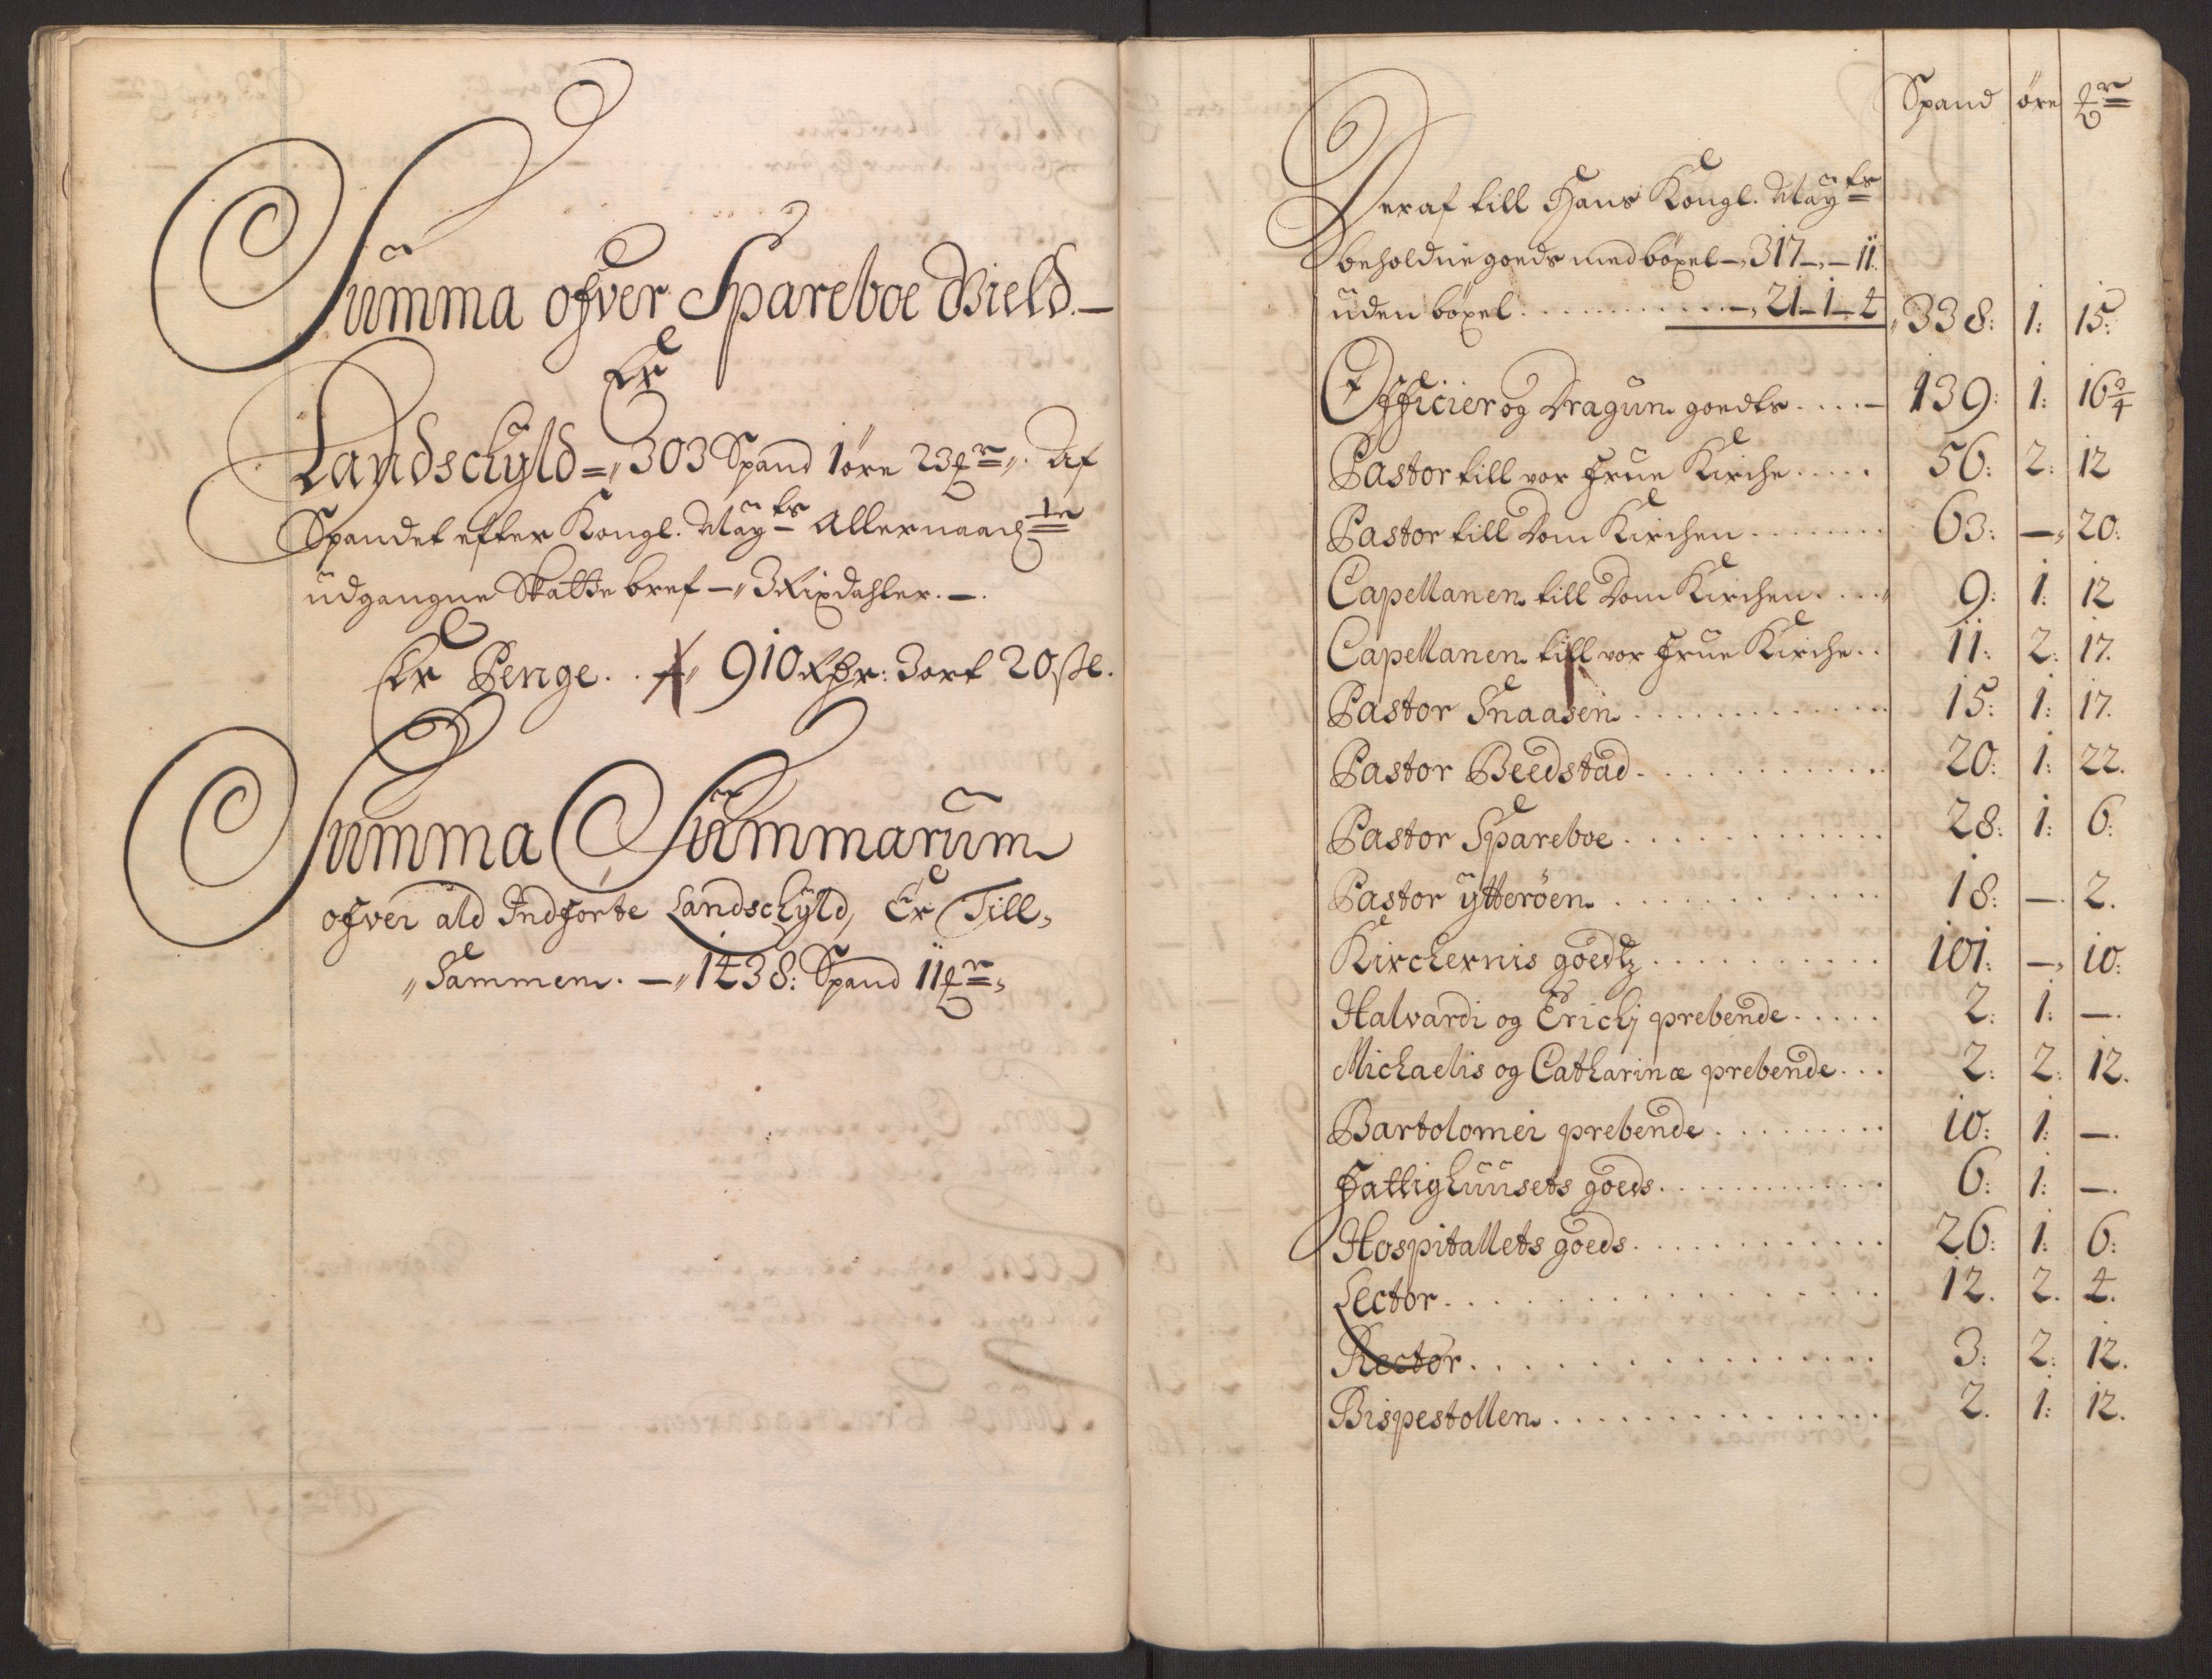 Summa ofver Spareboe Gield.—
Er
Landschyld=„ 303 Spand 1 øre 23 „. Af
Spandet efter Kongl. Mayts Allernaad:ste
udgangne Skatte bref —„ 3 Rixdahler. —.
Er Penge. . „ 910 Rdr: 3 ort 20 sk.
Summa Summarum
ofver ald Indførte Landschyld, Er Till„
„Sammen. —„ 1238: Spand 11 „
Spand øre
Deraf till Hans Kongl. Mayts
beholdne goeds med böxel —„ 317 —„— 11:
uden böxel . . . . . . . . . —„ 21 — 1 — 4 „338: 1: 15:
Officier og Dragun goedts . . . . — 139: 1: 16 2/4
Pastor till vor Frue Kirche . . . . . 56: 2: 12
Pastor till Dom Kirchen . . . . . . . 63: —„ 20:
Capellanen till Dom Kirchen . . . . 9: 1: 12
Capellanen till vor Frue Kirche . . 11: 2: 17.
Pastor Snaasen . . . . . . . . . . . . 15: 1: 17.
Pastor Beedstad . . . . . . . . . . . 20: 1: 22.
Pastor Spareboe . . . . . . . . . . . 28: 1: 6:
Pastor ytterøen . . . . . . . . . . . 18: —. 2.
Kirchernis goedtz . . . . . . . . . . 101: —„ 10:
Halvardi og Erichj prebende . . . . . 2: 1: —.
Michaelis og Catharinæ prebende . . . 2: 2: 12.
Bartolomei prebende . . . . . . . . . 10: 1: —.
Fattighuusets goeds . . . . . . . . . 6: 1: —.
Hospitallets goeds . . . . . . . . . 26: 1: 6:
Lector . . . . . . . . . . . . . . . 12. 2. 4.
Rector . . . . . . . . . . . . . . . 3: 2: 12.
Bispestollen . . . . . . . . . . . . 2. 1: 12.